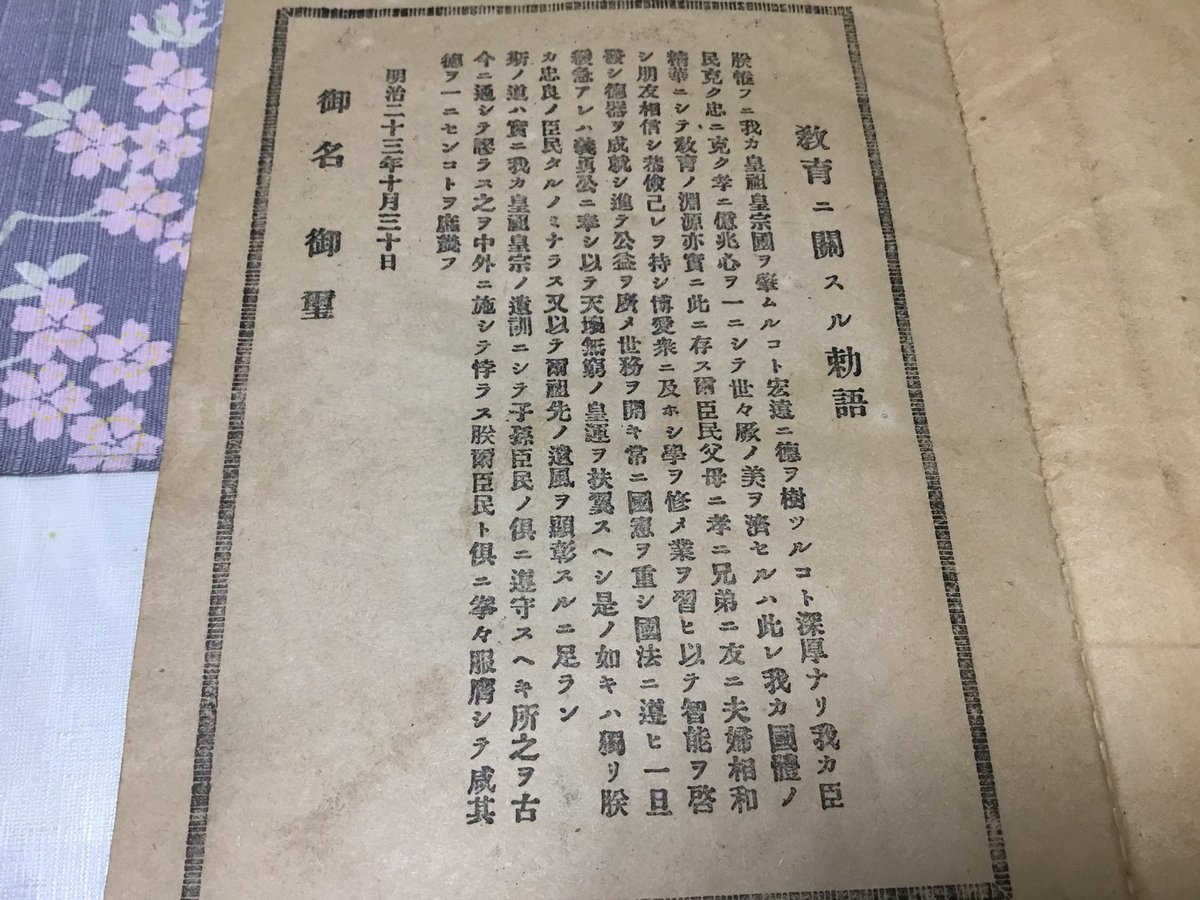 敎育ニ關スル勅語
朕惟フニ我カ皇祖皇宗國ヲ肇ムルコト宏遠ニ德ヲ樹ツルコト深厚ナリ我カ臣
民克ク忠ニ克ク孝ニ億兆心ヲ一ニシテ世々厥ノ美ヲ濟セルハ此レ我カ國體ノ
精華ニシテ敎育ノ淵源亦實ニ此ニ存ス爾臣民父母ニ孝ニ兄弟ニ友ニ夫婦相和
シ朋友相信シ恭儉己レヲ持シ博愛衆ニ及ホシ學ヲ修メ業ヲ習ヒ以テ智能ヲ啓
發シ德器ヲ成就シ進テ公益ヲ廣メ世務ヲ開キ常ニ國憲ヲ重シ國法ニ遵ヒ一旦
緩急アレハ義勇公ニ奉シ以テ天壤無窮ノ皇運ヲ扶翼スヘシ是ノ如キハ獨リ朕
カ忠良ノ臣民タルノミナラス又以テ爾祖先ノ遺風ヲ顯彰スルニ足ラン
斯ノ道ハ實ニ我カ皇祖皇宗ノ遺訓ニシテ子孫臣民ノ俱ニ遵守スヘキ所之ヲ古
今ニ通シテ謬ラス之ヲ中外ニ施シテ悖ラス朕爾臣民ト俱ニ拳々服膺シテ咸其
德ヲ一ニセンコトヲ庶幾フ
明治二十三年十月三十日
御名御璽